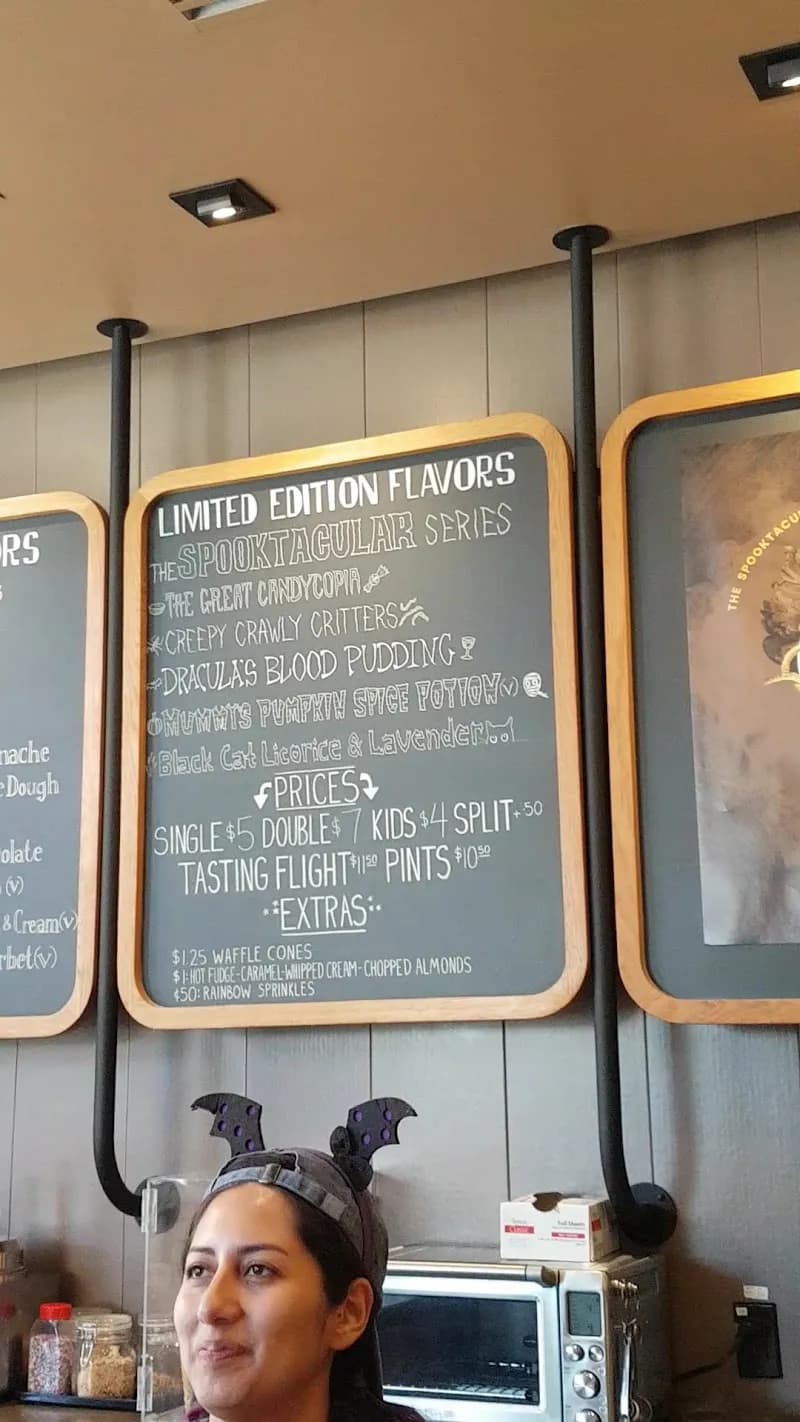 RS
nache
e Dough
olate
(v)
& Cream(v)
rbet(v)
LIMITED EDITION FLAVORS
THE SPOOKTACULAR SERIES
THE GREAT CANDYCOPIA
CREEPY CRAWLY CRITTERS
DRACULA'S BLOOD PUDDING
MUMMY'S PUMPKIN SPICE POTION(v)
Black Cat Licorice & Lavender
PRICES
SINGLE $5 DOUBLE $7 KIDS $4 SPLIT +.50
TASTING FLIGHT $11.50 PINTS $10.50
EXTRAS
$1.25 WAFFLE CONES
$1: HOT FUDGE-CARAMEL-WHIPPED CREAM-CHOPPED ALMONDS
¢50: RAINBOW SPRINKLES
THE SPOOKTACU
Classic